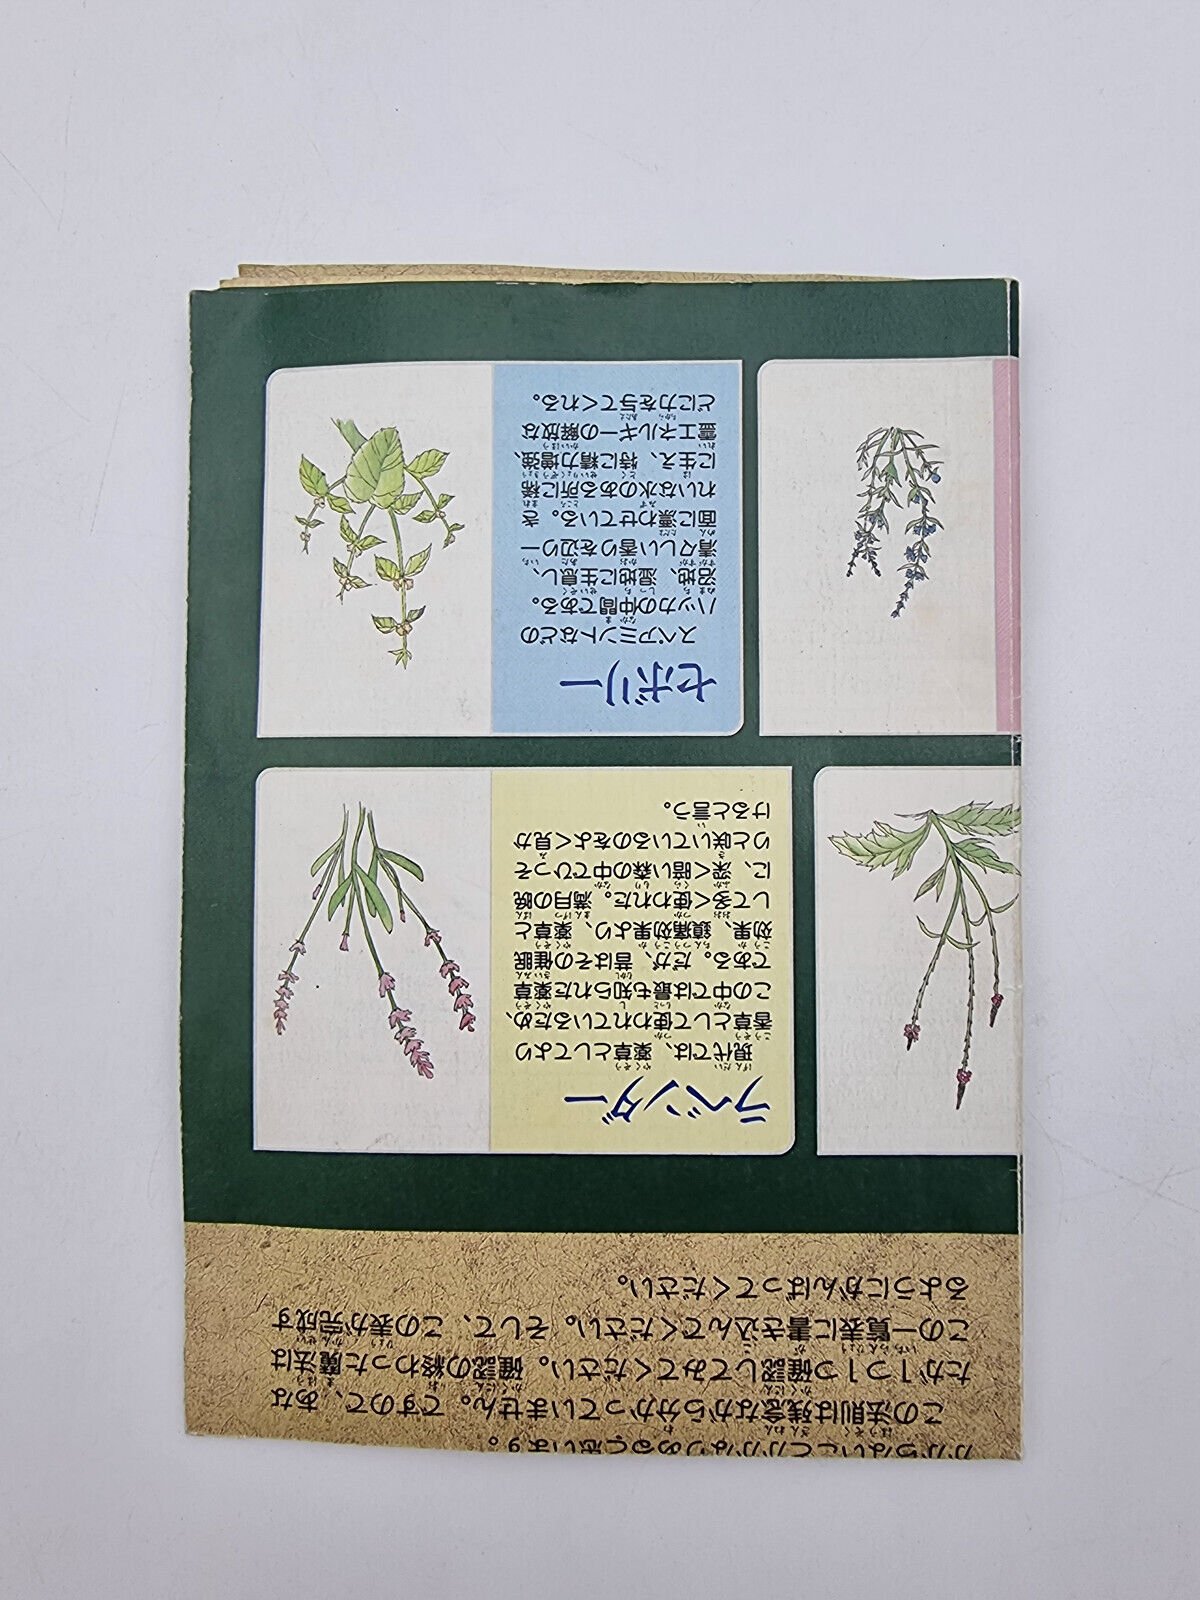 かからないことがかなりあると思います。
この法則は残念ながら分かっていません。ですので、あな
たが1つ1つ確認してみてください。確認の終わった魔法は
この一覧表に書き込んでください。そして、この表が完成す
るようにがんばってください。
ラベンダー
現代では、薬草としてより
香草として使われているため、
この中では最も知られた薬草
である。だが、昔はその催眠
効果、鎮痛効果より、薬草と
して多く使われた。満月の晩
に、深く暗い森の中でひっそ
りと咲いているのをよく見か
けると言う。
セボリー
スペアミントなどの
ハッカの仲間である。
沼地、湿地に生息し、
清々しい香りを辺り一
面に漂わせている。き
れいな水のある所に稀
に生え、特に精力増強、
霊エネルギーの解放な
どに力を与てくれる。